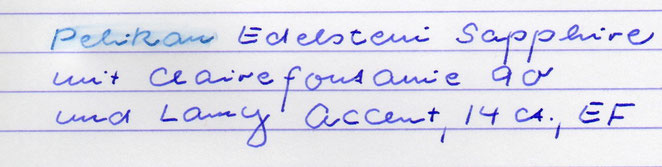 Pelikan Edelstein Sapphire
mit Clairefontaine 90
und Lamy Accent, 14 ct., EF